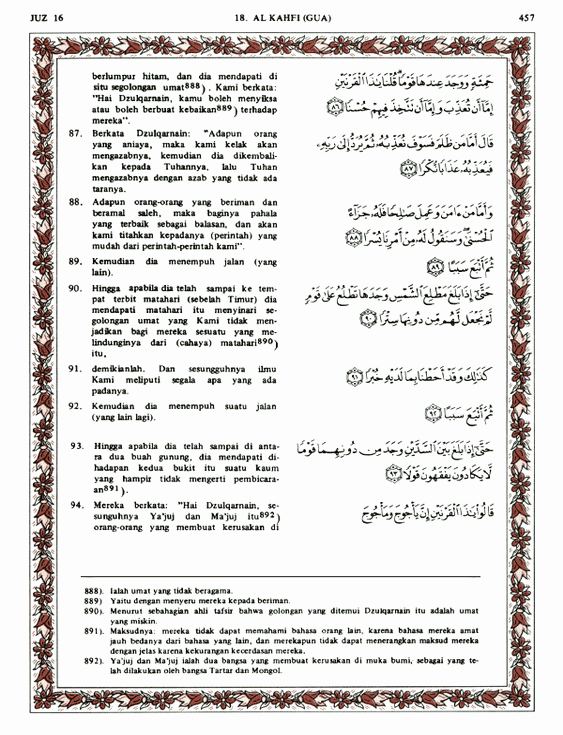 JUZ 16
18. AL KAHFI (GUA)
457
berlumpur hitam, dan dia mendapati di
situ segolongan umat888) . Kami berkata:
"Hai Dzulqarnain, kamu boleh menyiksa
atau boleh berbuat kebaikan889) terhadap
mereka".
87. Berkata Dzulqarnain: "Adapun orang
yang aniaya, maka kami kelak akan
mengazabnya, kemudian dia dikembali-
kan kepada Tuhannya, lalu Tuhan
mengazabnya dengan azab yang tidak ada
taranya.
88. Adapun orang-orang yang beriman dan
beramal saleh, maka baginya pahala
yang terbaik sebagai balasan, dan akan
kami titahkan kepadanya (perintah) yang
mudah dari perintah-perintah kami".
89. Kemudian dia menempuh jalan (yang
lain).
90. Hingga apabila dia telah sampai ke tem-
pat terbit matahari (sebelah Timur) dia
mendapati matahari itu menyinari se-
golongan umat yang Kami tidak men-
jadikan bagi mereka sesuatu yang me-
lindunginya dari (cahaya) matahari890)
itu,
91. demikianlah. Dan sesungguhnya ilmu
Kami meliputi segala apa yang ada
padanya.
92. Kemudian dia menempuh suatu jalan
(yang lain lagi).
93. Hingga apabila dia telah sampai di anta-
ra dua buah gunung, dia mendapati di-
hadapan kedua bukit itu suatu kaum
yang hampir tidak mengerti pembicara-
an891) .
94. Mereka berkata: "Hai Dzulqarnain, se-
sunguhnya Ya'juj dan Ma'juj itu892)
orang-orang yang membuat kerusakan di
حَمِئَةٍ وَوَجَدَ عِندَهَا قَوْمًا قُلْنَا يَٰذَا ٱلْقَرْنَيْنِ
إِمَّآ أَن تُعَذِّبَ وَإِمَّآ أَن تَتَّخِذَ فِيهِمْ حُسْنًا ٨٦
قَالَ أَمَّا مَن ظَلَمَ فَسَوْفَ نُعَذِّبُهُۥ ثُمَّ يُرَدُّ إِلَىٰ رَبِّهِۦ
فَيُعَذِّبُهُۥ عَذَابًا نُّكْرًا ٨٧
وَأَمَّا مَنْ ءَامَنَ وَعَمِلَ صَٰلِحًا فَلَهُۥ جَزَآءً
ٱلْحُسْنَىٰ وَسَنَقُولُ لَهُۥ مِنْ أَمْرِنَا يُسْرًا ٨٨
ثُمَّ أَتْبَعَ سَبَبًا ٨٩
حَتَّىٰٓ إِذَا بَلَغَ مَطْلِعَ ٱلشَّمْسِ وَجَدَهَا تَطْلُعُ عَلَىٰ قَوْمٍ
لَّمْ نَجْعَل لَّهُم مِّن دُونِهَا سِتْرًا ٩٠
كَذَٰلِكَ وَقَدْ أَحَطْنَا بِمَا لَدَيْهِ خُبْرًا ٩١
ثُمَّ أَتْبَعَ سَبَبًا ٩٢
حَتَّىٰٓ إِذَا بَلَغَ بَيْنَ ٱلسَّدَّيْنِ وَجَدَ مِن دُونِهِمَا قَوْمًا
لَّا يَكَادُونَ يَفْقَهُونَ قَوْلًا ٩٣
قَالُوا۟ يَٰذَا ٱلْقَرْنَيْنِ إِنَّ يَأْجُوجَ وَمَأْجُوجَ
888). Ialah umat yang tidak beragama.
889) Yaitu dengan menyeru mereka kepada beriman.
890). Menurut sebahagian ahli tafsir bahwa golongan yang ditemui Dzulqarnain itu adalah umat
yang miskin.
891). Maksudnya: mereka tidak dapat memahami bahasa orang lain, karena bahasa mereka amat
jauh bedanya dari bahasa yang lain, dan merekapun tidak dapat menerangkan maksud mereka
dengan jelas karena kekurangan kecerdasan mereka.
892). Ya'juj dan Ma'juj ialah dua bangsa yang membuat kerusakan di muka bumi, sebagai yang te-
lah dilakukan oleh bangsa Tartar dan Mongol.